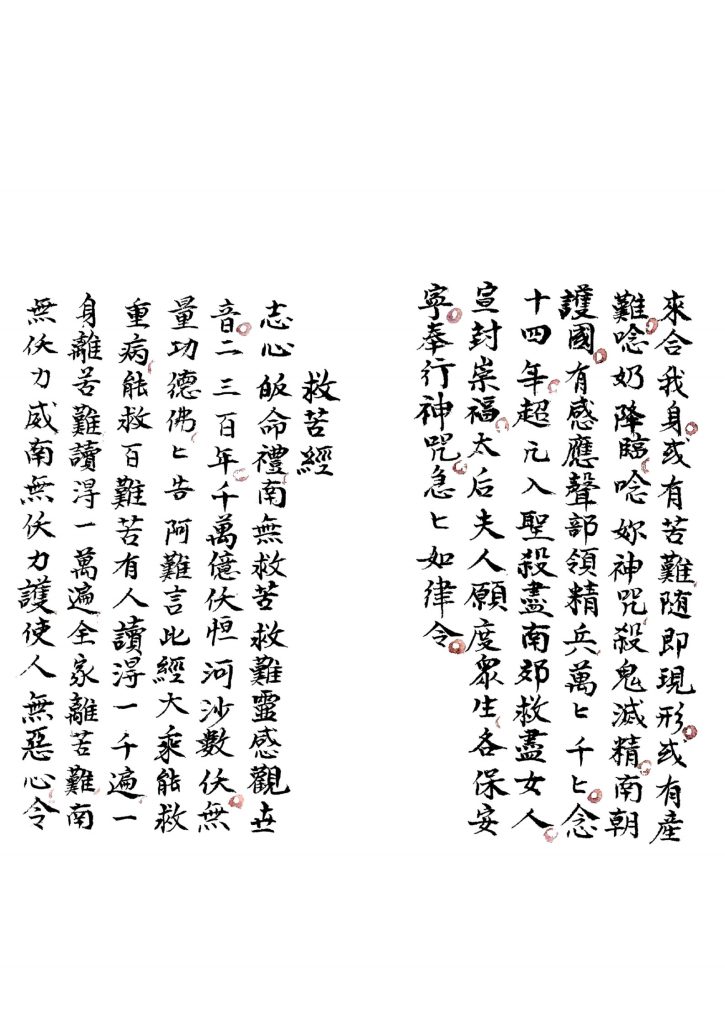 來合我身或有苦難随即現形或有産
難唸奶降臨唸妳神咒殺鬼滅精南朝
護國有感應聲部領精兵萬匕千匕念
十四年超凢入聖殺盡南郊救盡女人
宣封崇福太后夫人願度衆生各保安
寕奉行神咒急匕如律令
救苦經
志心皈命禮南無救苦救難靈感觀世
音二三百年千萬億伏恒河沙數伏無
量功德佛匕告阿難言比經大乘能救
重病能救百難苦有人讀淂一千遍一
身離苦難讀淂一萬遍全家離苦難南
無伏力威南無伏力護使人無惡心令